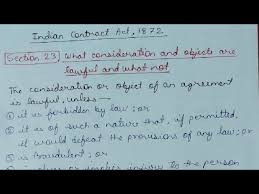 Indian Contract Act, 1872.
Section 23: What consideration and objects are
lawful and what not
The consideration or object of an agreement
is lawful, unless—
① it is forbidden by law; or
② it is of such a nature that, if permitted,
it would defeat the provisions of any law; or
③ is fraudulent; or
injury to the person